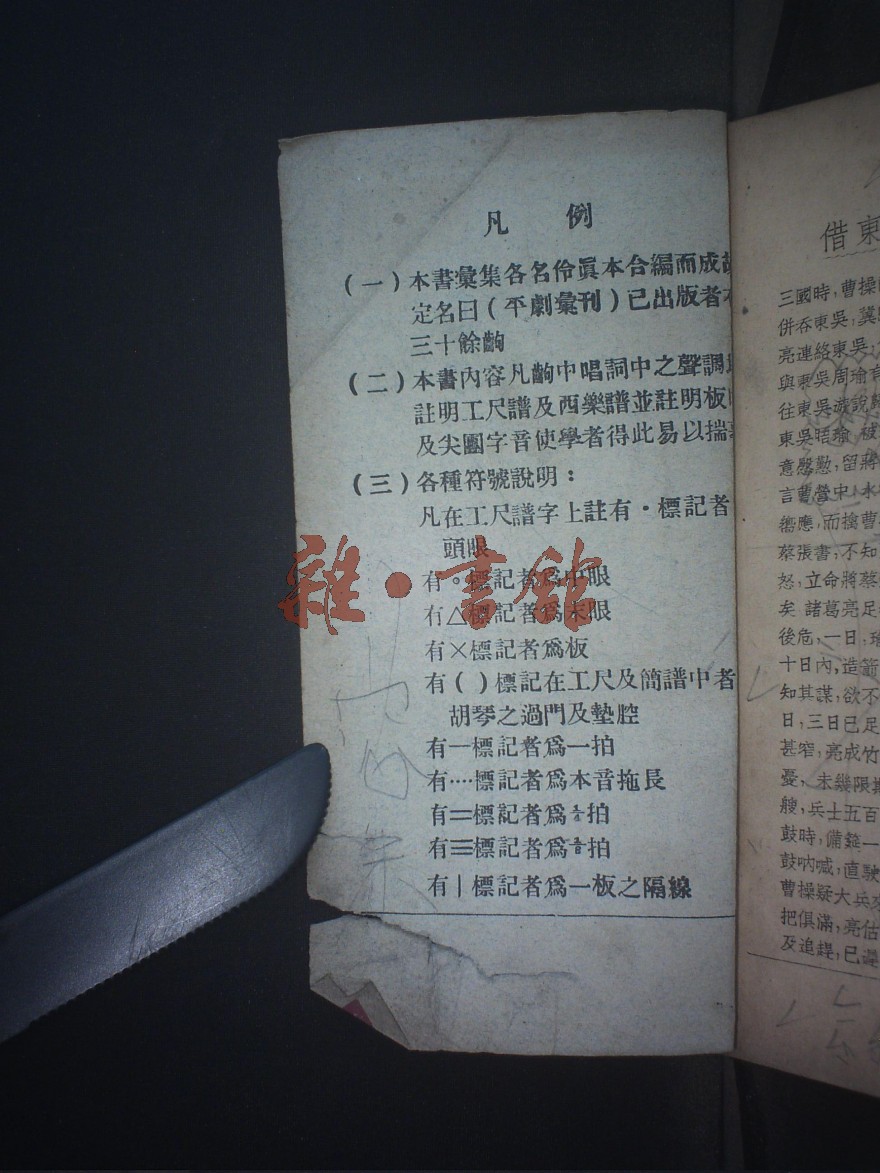 凡 例
（一）本書彙集各名伶眞本合編而成
定名曰（平劇彙刊）已出版者
三十餘齣
（二）本書內容凡齣中唱詞中之聲調
註明工尺譜及西樂譜並註明板
及尖團字音使學者得此易以揣
（三）各種符號說明：
凡在工尺譜字上註有・標記者
頭眼
有。標記者爲中眼
有△標記者爲末眼
有×標記者爲板
有（）標記在工尺及簡譜中者
胡琴之過門及墊腔
有一標記者爲一拍
有····標記者爲本音拖長
有二標記者爲拍
有三標記者爲拍
有｜標記者爲一板之隔線
雜・書館
借東
三國時，曹操
併吞東吳，冀
亮連絡東吳，
與東吳周瑜
往東吳
東吳 瑜 被
意慇懃，留蔣
言曹營中，水
嚮應，而擒曹
蔡張書，不知
怒，立命將蔡
矣 諸葛亮足
後危，一日，瑜
十日內，造箭
知其謀，欲不
日，三日已足
甚窄，亮成竹
憂，未幾限
艘，兵士五百
鼓時，備 一
鼓吶喊，直駛
曹操疑大兵
把俱滿，亮估
及追趕，已